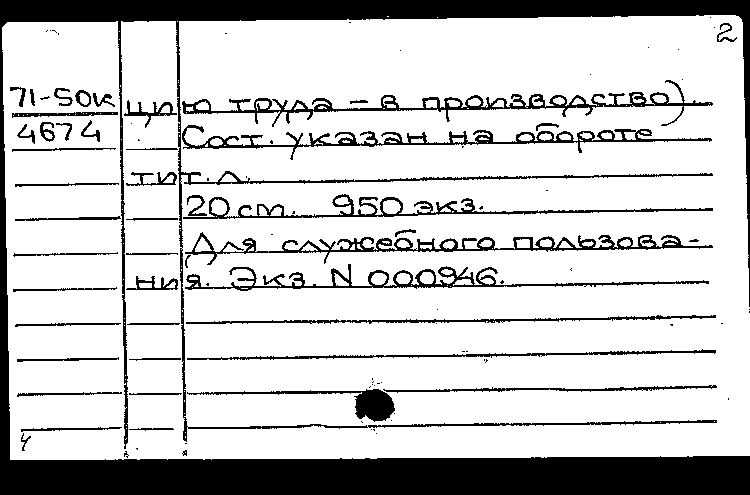 2
71-50к цию труда - в производство).
4674 Сост. указан на обороте
тит. л.
20 ст. 950 экз.
Для служебного пользова-
ния. Экз. N 000946.
4